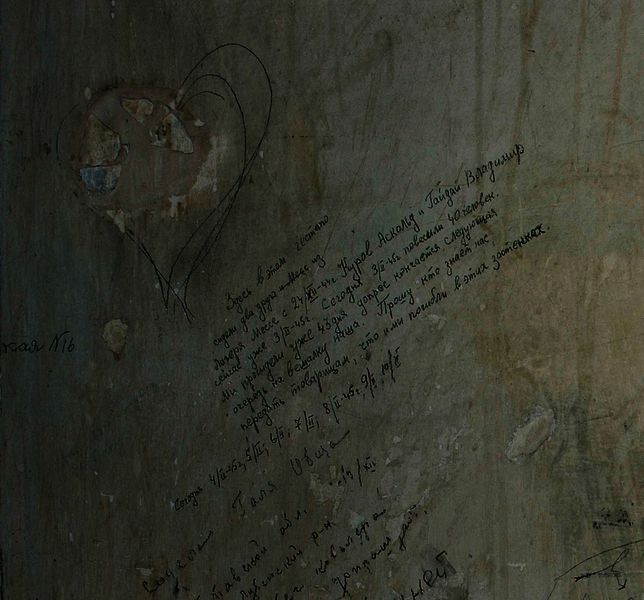 Здесь в этом гестапо
сидели два друга из
лагеря Мессе с 24/XII-44г Куров Аскольд и Гайдай Владимир
сейчас уже 3/II-45г. Сегодня 3/II-45г повесили 40 человек.
Мы просидели уже 43 дня допрос кончается следующая
очередь на вешалку наша. Прошу, кто знает нас,
передать товарищам, что и мы погибли в этих застенках.
Сегодня 4/II-45г, 5/II, 6/II, 7/II, 8/II-45г, 9/II, 10/II
кая №16
Галя
13/XII
Сидела
обл.
р-н.